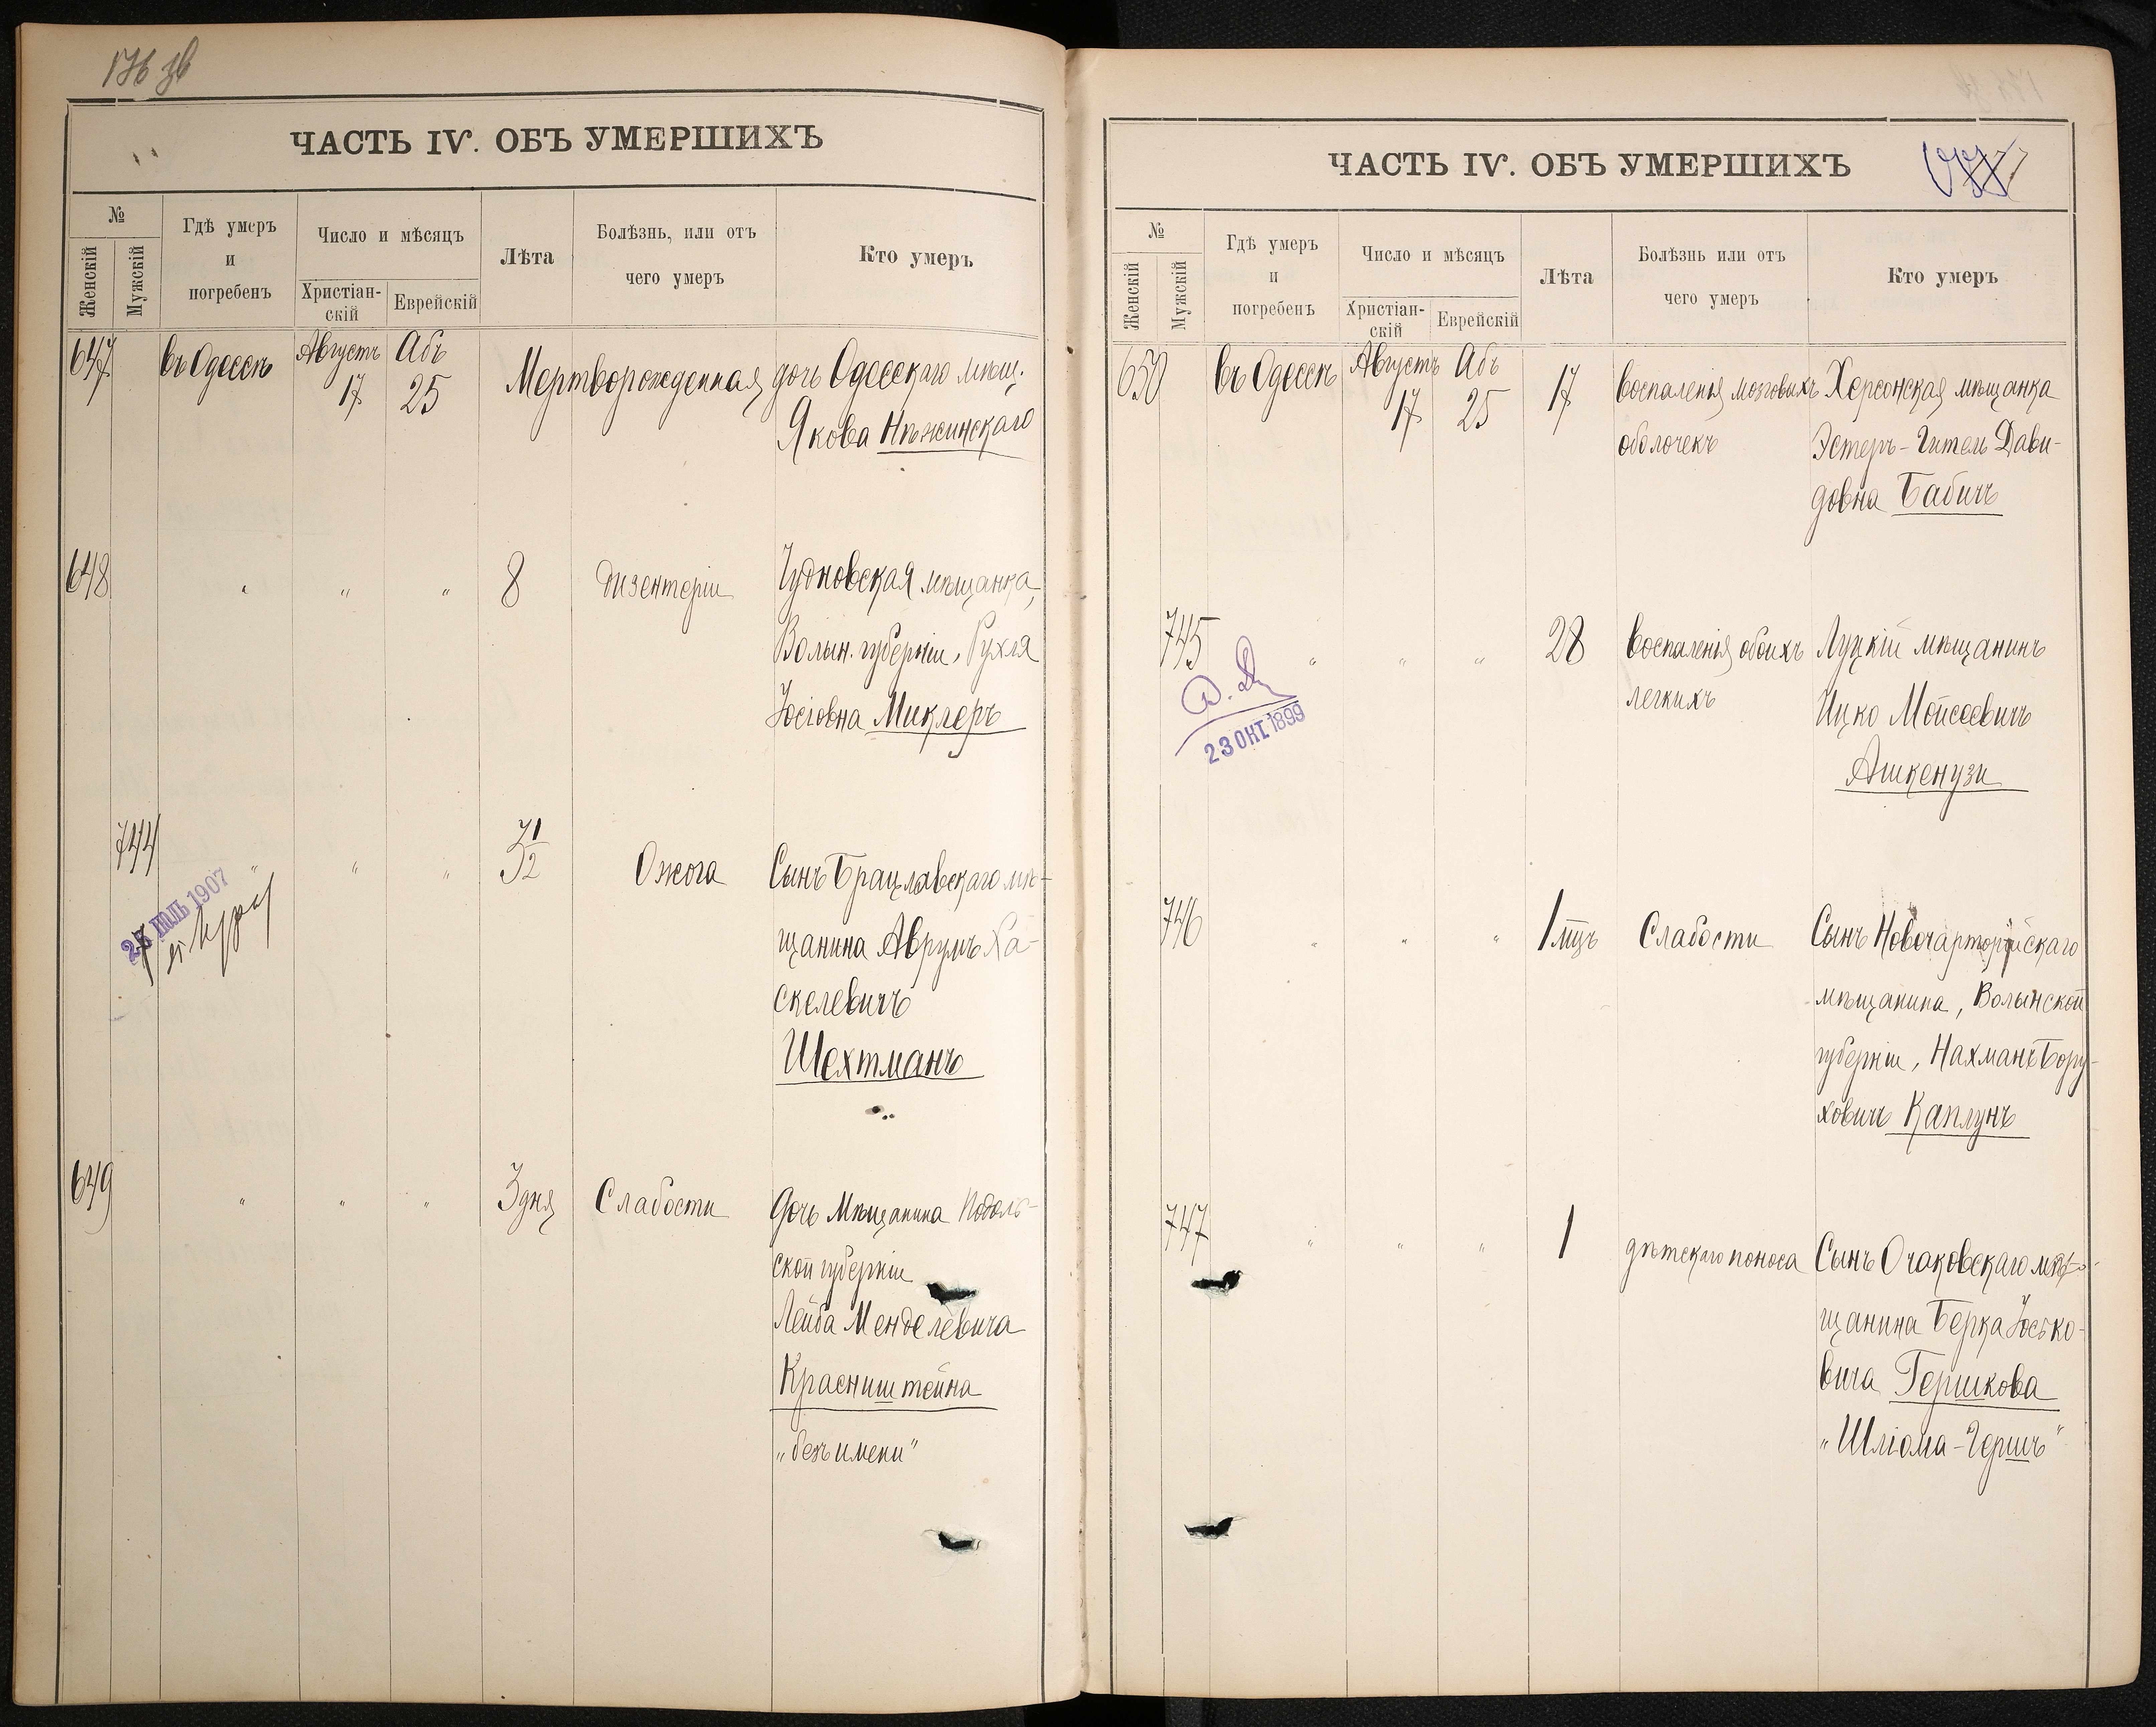 176 зв
ЧАСТЬ IV. ОБЪ УМЕРШИХЪ
№
Женскій
Мужскій
Гдѣ умеръ
и
погребенъ
Число и мѣсяцъ
Христіан-
скій
Еврейскій
Лѣта
Болѣзнь, или отъ
чего умеръ
Кто умеръ
647 въ Одессѣ Августъ Абъ Мертворожденная дочь Одесскаго мѣщ.
17 25 Якова Нѣжинскаго
648 " " " 8 Дизентеріи Чудновская мѣщанка,
Волын. губерніи, Рухля
Іосіовна Миклеръ
744 " " " 3 1/2 Ожога Сынъ Брацлавскаго мѣ-
щанина Аврумъ Ха-
скелевичъ
Шехтманъ
ІЮЛЬ 1907
649 " " " 3 дня Слабости Дочь Мѣщанина Подоль-
ской губерніи
Лейба Менделевича
Красништейна
„безъ имени"
ЧАСТЬ IV. ОБЪ УМЕРШИХЪ
177
№
Женскій
Мужскій
Гдѣ умеръ
и
погребенъ
Число и мѣсяцъ
Христіан-
скій
Еврейскій
Лѣта
Болѣзнь или отъ
чего умеръ
Кто умеръ
650 въ Одессѣ Августъ Абъ 17 воспаленія мозговыхъ Херсонская мѣщанка
17 25 оболочекъ Эстеръ-Гитель Дави-
довна Бабичъ
745 " " " 28 воспаленія обоихъ Луцкій мѣщанинъ
легкихъ Ицко Мойсеевичъ
Ашкенузи
23 ОКТ 1899
746 " " " 1 мцъ Слабости Сынъ Новочарторійскаго
мѣщанина, Волынской
губерніи, Нахманъ Бору-
ховичъ Каплунъ
747 " " " 1 дѣтскаго поноса Сынъ Очаковскаго мѣ-
щанина Берка Іосько-
вича Гершкова
„Шліома-Гершъ"